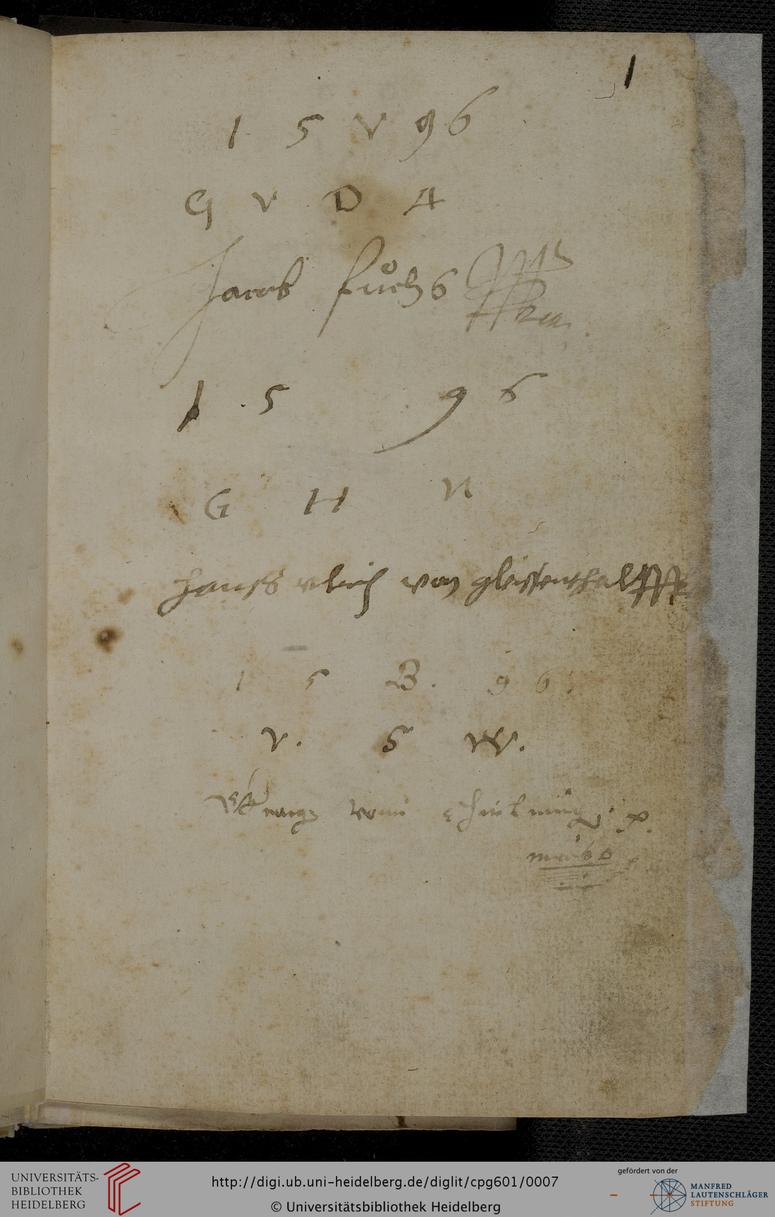 1
1 5 V 96
G V D A
Jacob Fuchs
1 . 5 9 6
G H N
Hanss Ulrich von gleissenthal
1 5 B. 9 6.
V. S W.
vom
UNIVERSITÄTS-
BIBLIOTHEK
HEIDELBERG
http://digi.ub.uni-heidelberg.de/diglit/cpg601/0007
© Universitätsbibliothek Heidelberg
gefördert von der
MANFRED
LAUTENSCHLÄGER
STIFTUNG